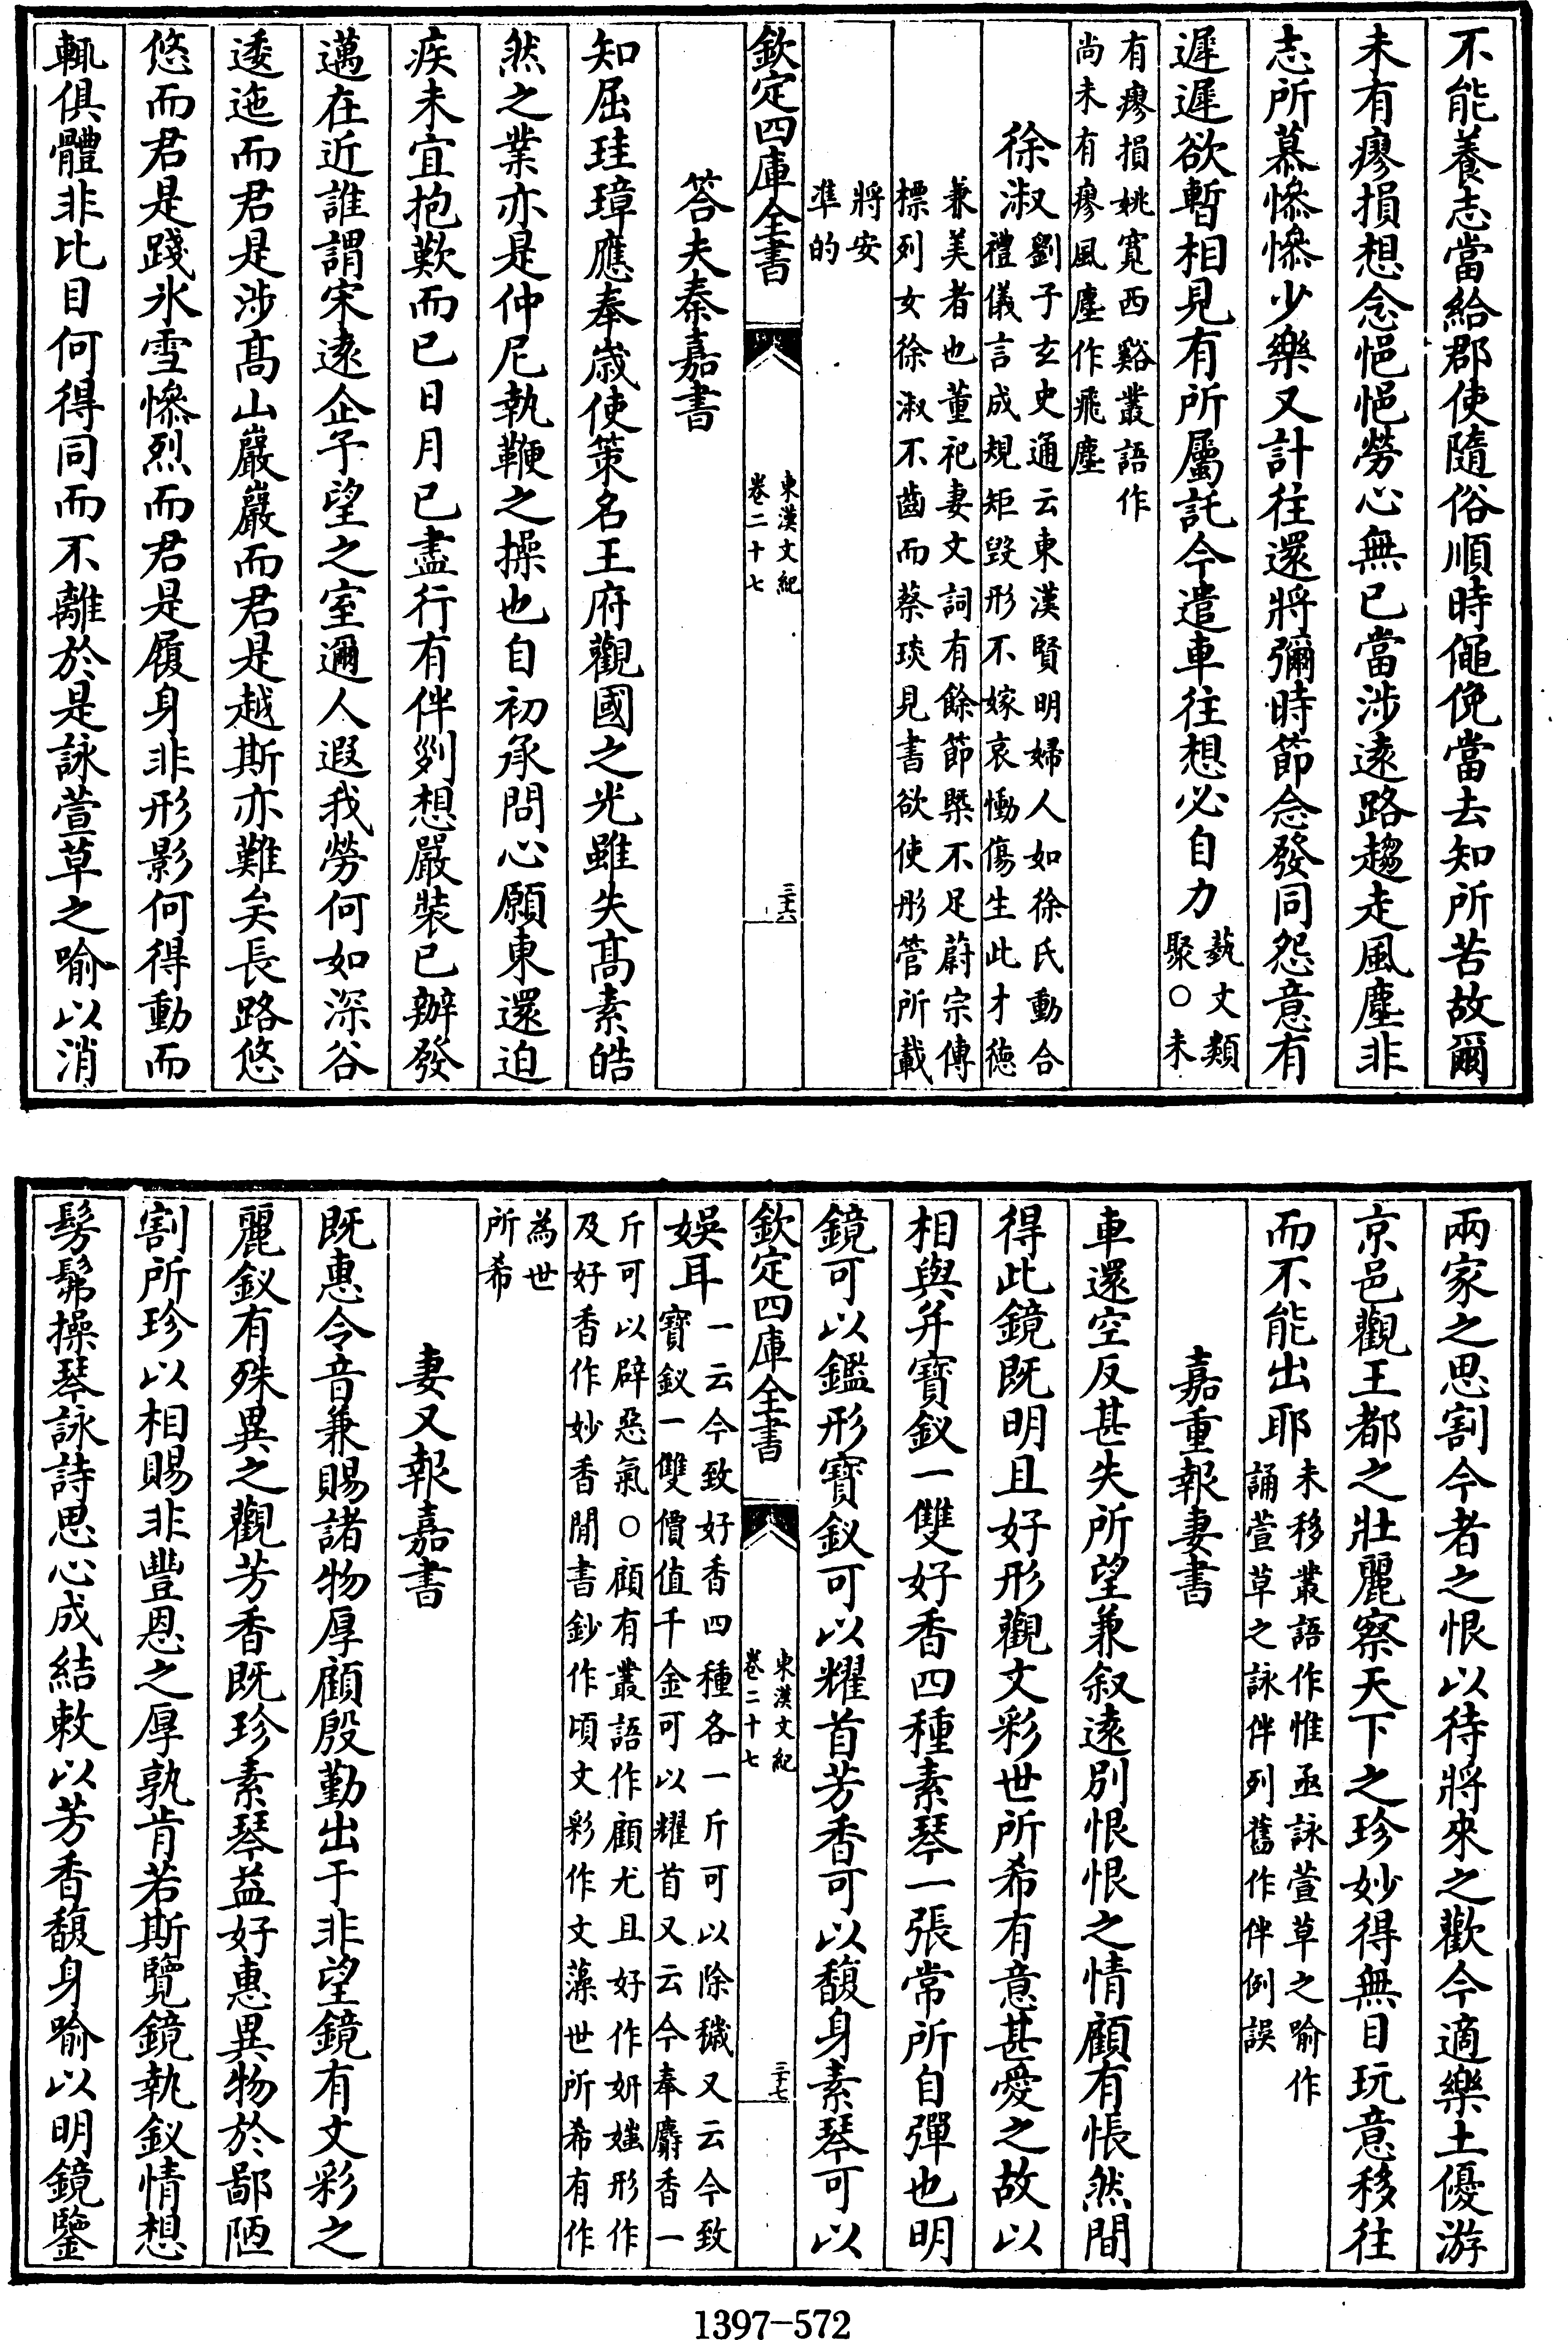 不能養志當給郡使隨俗順時僶俛當去知所苦故爾
未有瘳損想念悒悒勞心無已當涉遠路趨走風塵非
志所慕慘慘少樂又計往還將彌時節念發同怨意有
遲遲欲暫相見有所屬託今遣車往想必自力藝文類
聚○未
有瘳損姚寛西谿叢語作
尚未有瘳風塵作飛塵
徐淑劉子玄史通云東漢賢明婦人如徐氏動合
禮儀言成規矩毀形不嫁哀慟傷生此才徳
兼美者也董祀妻文詞有餘節槩不足蔚宗傳
標列女徐淑不齒而蔡琰見書欲使彤管所載
將安
凖的
欽定四庫全書
東漢文紀
卷二十七
三十六
答夫秦嘉書
知屈珪璋應奉歳使策名王府觀國之光雖失髙素皓
然之業亦是仲尼執鞭之操也自初承問心願東還迫
疾未宜抱歎而已日月已盡行有伴𠛱想嚴裝已辦發
邁在近誰謂宋遠企予望之室邇人遐我勞何如深谷
逶迤而君是涉髙山巖巖而君是越斯亦難矣長路悠
悠而君是踐氷雪慘烈而君是履身非形影何得動而
輒俱體非比目何得同而不離於是詠萱草之喻以消
兩家之思割今者之恨以待將來之歡今適樂土優游
京邑觀王都之壯麗察天下之珍妙得無目玩意移往
而不能出耶未移叢語作惟亟詠萱草之喻作
誦萱草之詠伴列舊作伴例誤
嘉重報妻書
車還空反甚失所望兼叙遠別恨恨之情顧有悵然間
得此鏡既明且好形觀文彩世所希有意甚愛之故以
相與并寳釵一雙好香四種素琴一張常所自彈也明
鏡可以鑑形寳釵可以耀首芳香可以馥身素琴可以
欽定四庫全書
東漢文紀
卷二十七
三十七
娛耳一云今致好香四種各一斤可以除穢又云今致
寳釵一雙價值千金可以耀首又云今奉麝香一
斤可以辟惡氣○顧有叢語作顧尤且好作妍媸形作
及好香作妙香閒書鈔作頃文彩作文藻世所希有作
為世
所希
妻又報嘉書
既惠令音兼賜諸物厚顧殷勤出于非望鏡有文彩之
麗釵有殊異之觀芳香既珍素琴益好惠異物於鄙陋
割所珍以相賜非豐恩之厚孰肯若斯覽鏡執釵情想
髣髴操琴詠詩思心成結敕以芳香馥身喻以明鏡鑒
1397-572